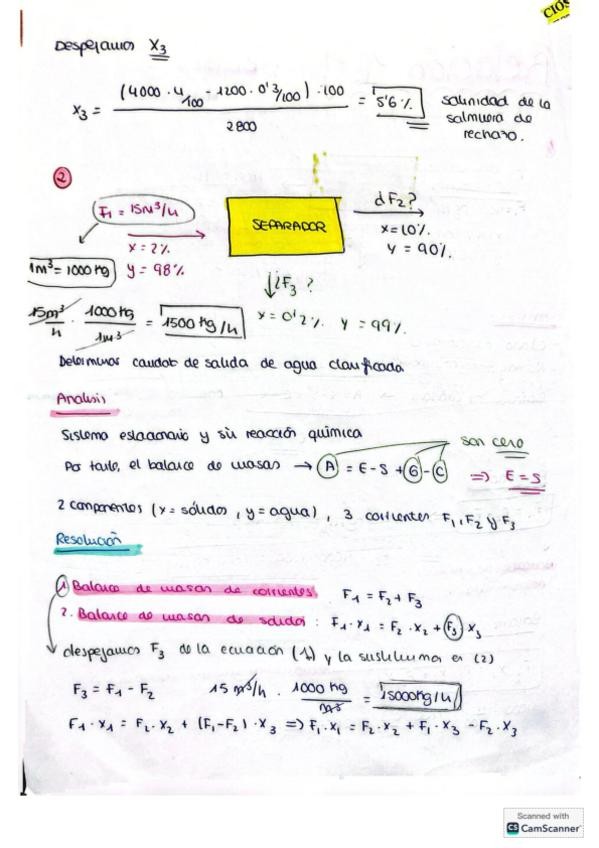 CIOS
Despejamos X3
X3 = (4000 · 4/100 - 1200 · 0'3/100) · 100 / 2800 = 5'6 % salinidad de la salmuera de rechazo.
2
F1 = 15m³/h SEPARADOR ¿F2?
x = 2% x = 10%.
1m³ = 1000 kg y = 98% y = 90%.
¿F3?
15m³/h · 1000 kg/1m³ = 1500 kg/h x = 0'2% y = 99%.
Determinar caudal de salida de agua clarificada
Analisis
Sistema estacionario y sin reacción química son cero
Por tanto, el balance de masas → A = E - S + G - C ⇒ E = S
2 componentes (x = sólidos, y = agua), 3 corrientes F1, F2 y F3
Resolución
1 Balance de masas de corrientes F1 = F2 + F3
2. Balance de masas de sólidos: F1 · X1 = F2 · X2 + F3 X3
despejamos F3 de la ecuación (1) y la sustituimos en (2)
F3 = F1 - F2 15 m³/h · 1000 kg/m³ = 15000kg/h
F1 · X1 = F2 · X2 + (F1 - F2) · X3 => F1 · X1 = F2 · X2 + F1 · X3 - F2 · X3
Scanned with
CS CamScanner